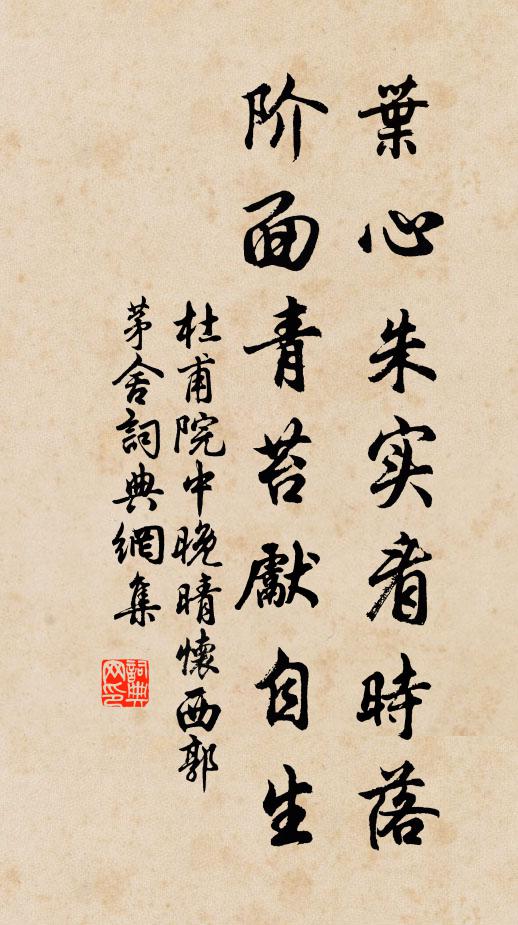 葉心朱实看時落
阶面青苔獻自生
杜甫院中晚晴懷西郭
茅舍詞典網集
詞典
网印